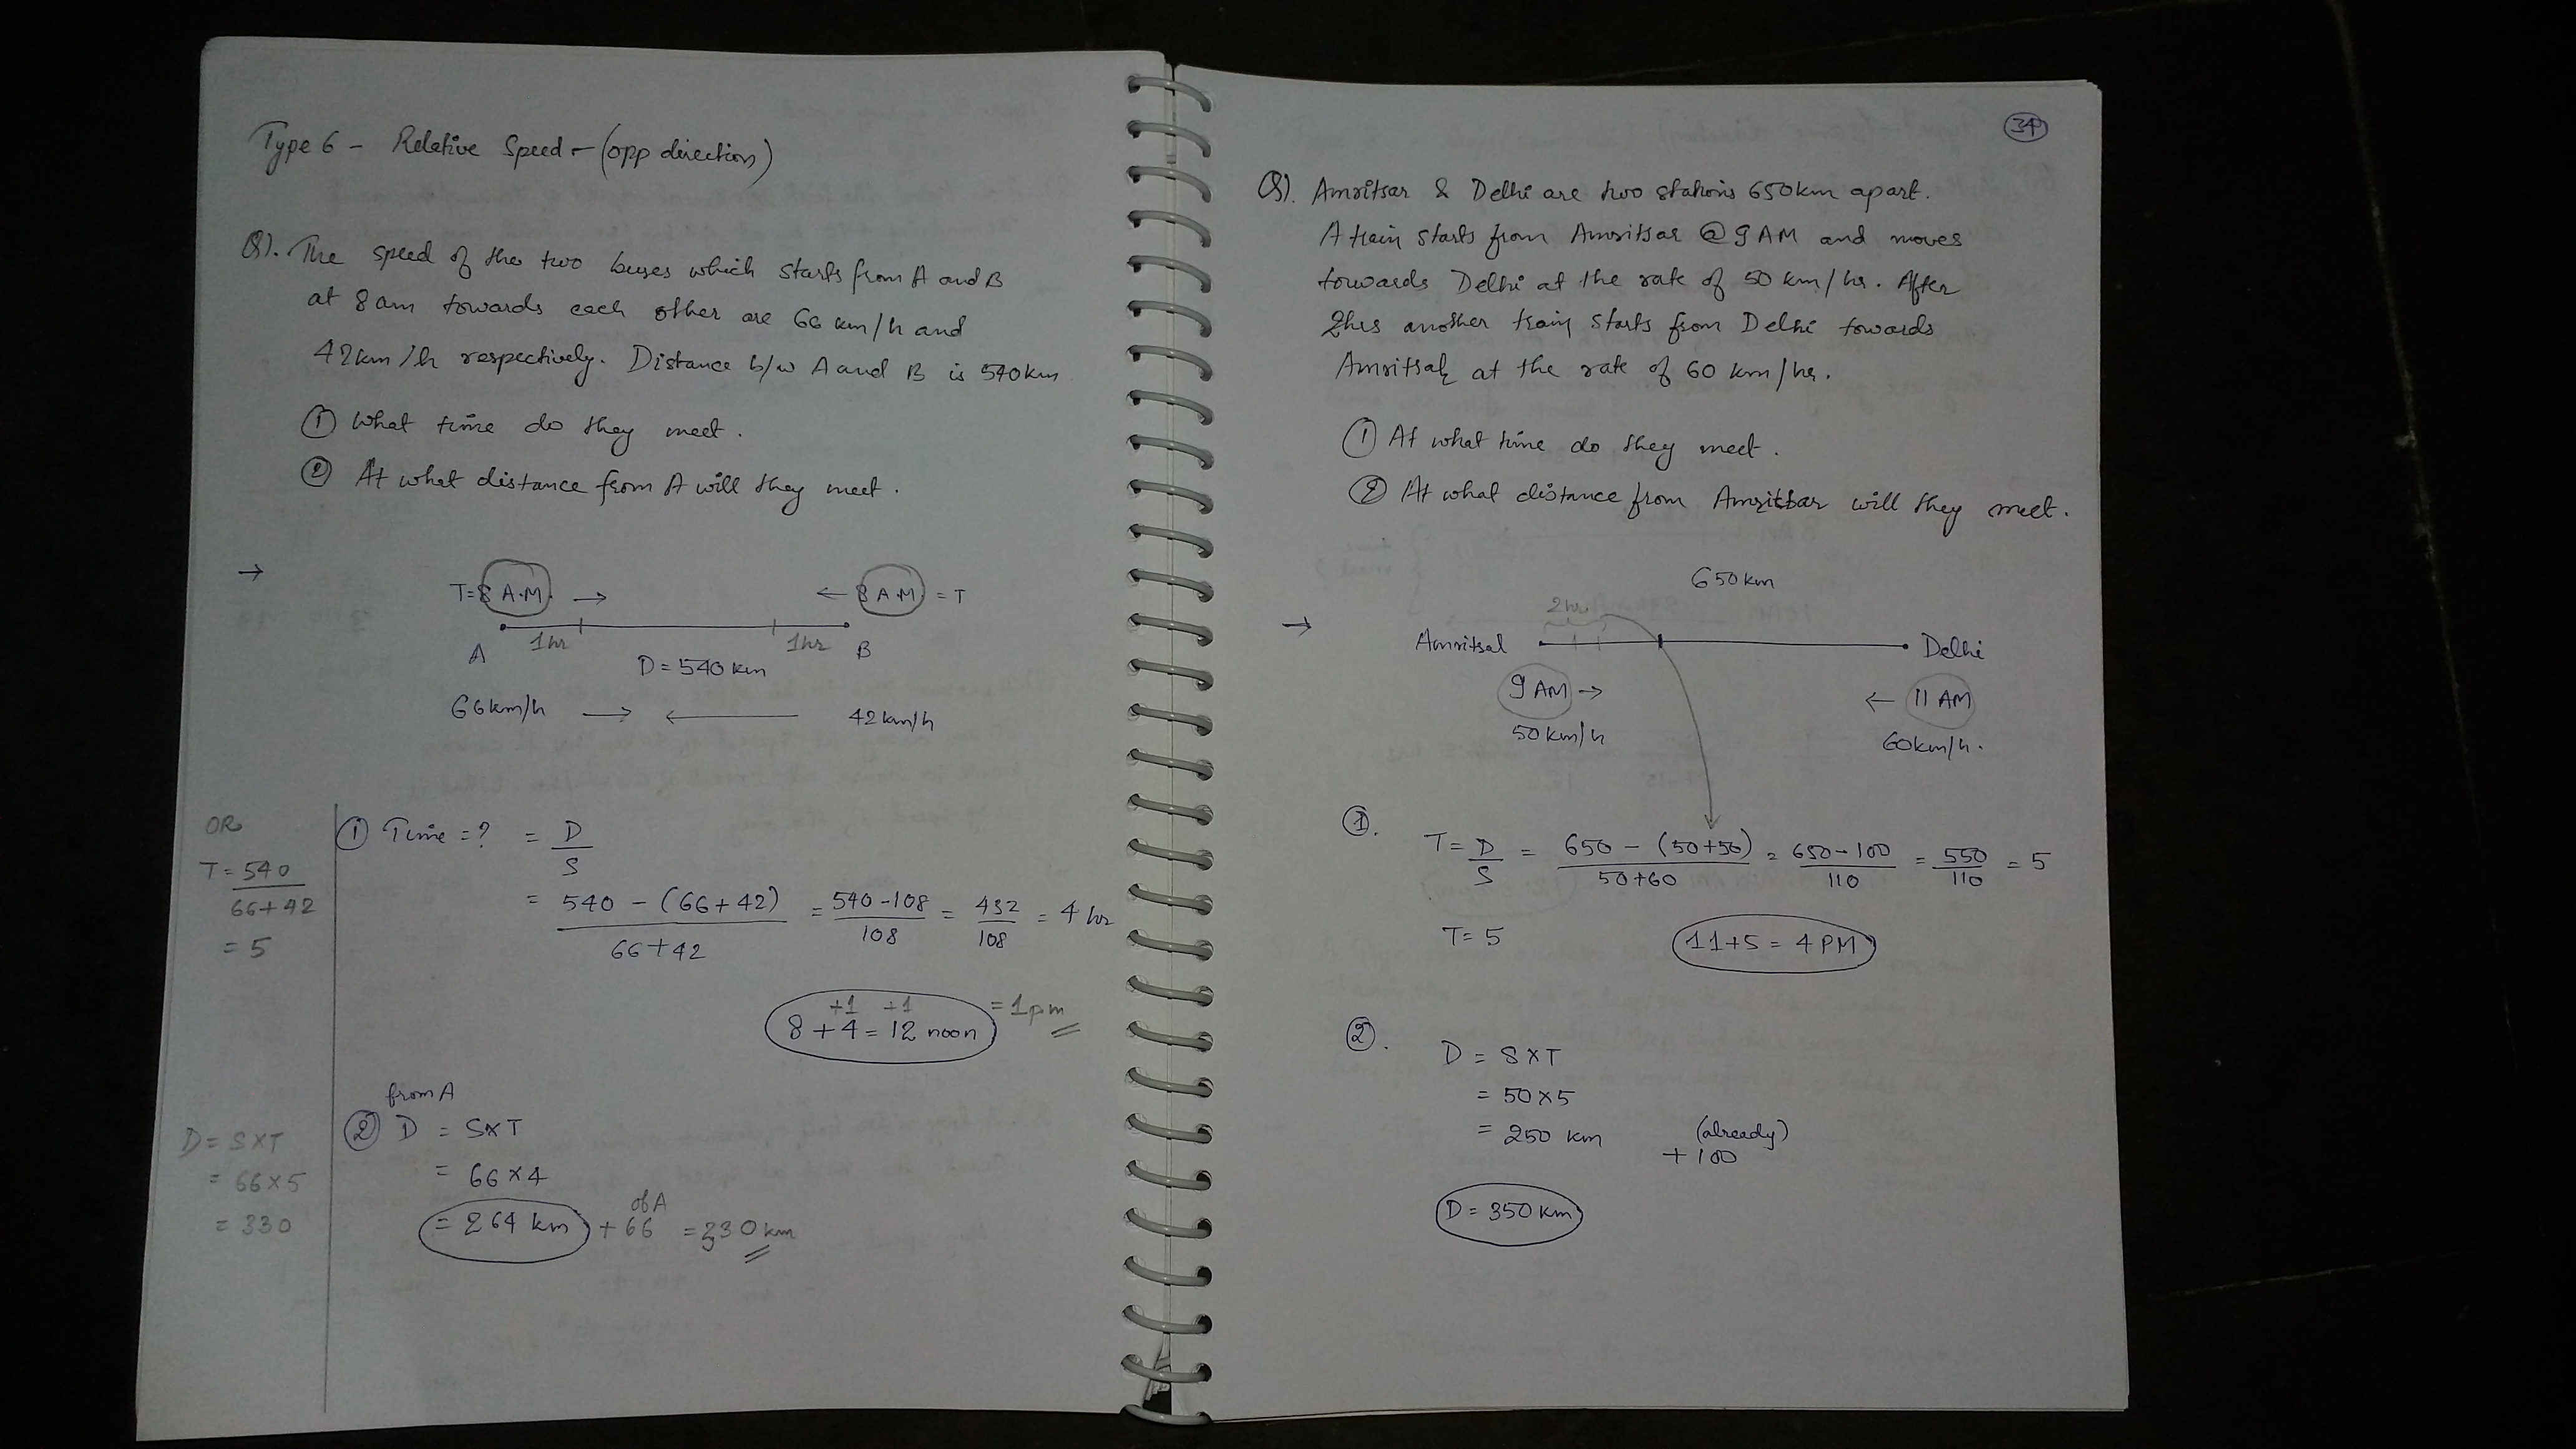 Type 6 - Relative Speed - (opp direction)
Q). The speed of the two buses which starts from A and B
at 8 am towards each other are 66 km/h and
42 km/h respectively. Distance b/w A and B is 540 km
① What time do they meet.
② At what distance from A will they meet.
→ T=8 A.M. → ← 8 A.M = T
A 1hr 1hr B
D = 540 km
66 km/h → ← 42 km/h
OR
T = 540
66+42
= 5
① Time = ? = D
S
= 540 - (66+42) = 540-108 = 432 = 4 hr
66+42 108 108
+1 +1
8 + 4 = 12 noon = 1pm
from A
② D = S×T
= 66×4
= 264 km + 66 of A = 330 km
D = S×T
= 66×5
= 330
34
Q). Amritsar & Delhi are two stations 650 km apart.
A train starts from Amritsar @ 9 AM and moves
towards Delhi at the rate of 50 km/hr. After
2hrs another train starts from Delhi towards
Amritsar at the rate of 60 km/hr.
① At what time do they meet.
② At what distance from Amritsar will they meet.
650 km
2hr
→ Amritsar Delhi
9 AM → ← 11 AM
50 km/h 60km/h.
①. T = D = 650 - (50+50) = 650-100 = 550 = 5
S 50+60 110 110
T = 5 11+5 = 4 PM
②. D = S×T
= 50×5
= 250 km (already)
+ 100
D = 350 km